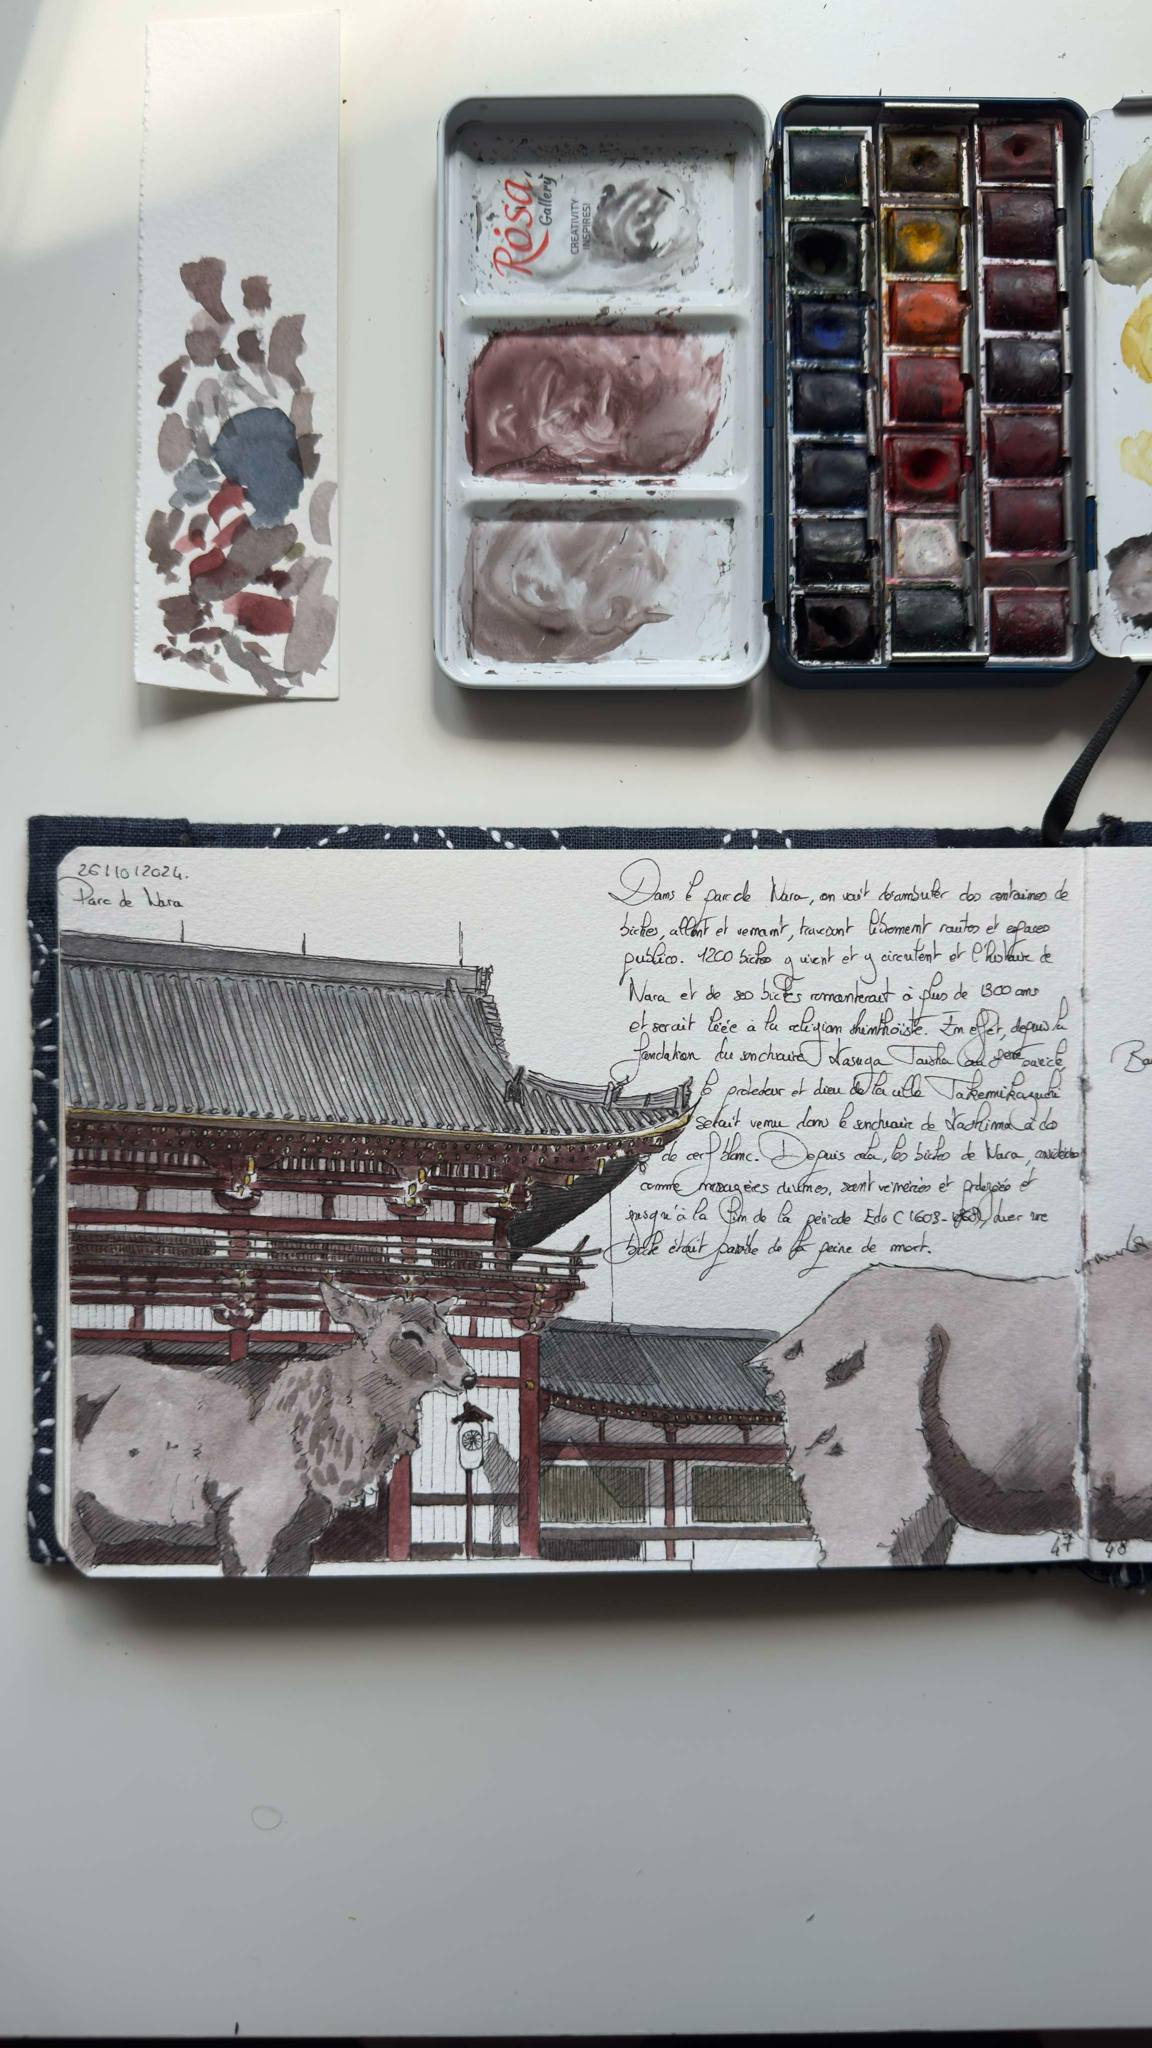 Rosa
Gallery
CREATIVITY
INSPIRES!
26/10/2024.
Parc de Nara
Dans le parc de Nara, on voit déambuler des centaines de
biches, allant et venant, traversant librement routes et espaces
publics. 1200 biches y vivent et y circulent et l'histoire de
Nara et de ses biches remonterait à plus de 1300 ans
et serait liée à la religion shinthoïste. En effet, depuis la
fondation du sanctuaire Kasuga Taisha au siècle,
le protecteur et dieu de la ville Takemikazuchi
serait venu dans le sanctuaire de Kashima à dos
de cerf blanc. Depuis cela, les biches de Nara, considérées
comme messagères divines, sont vénérées et protégées et
jusqu'à la fin de la période Edo (1603-1868), tuer une
biche était passible de la peine de mort.
47
48